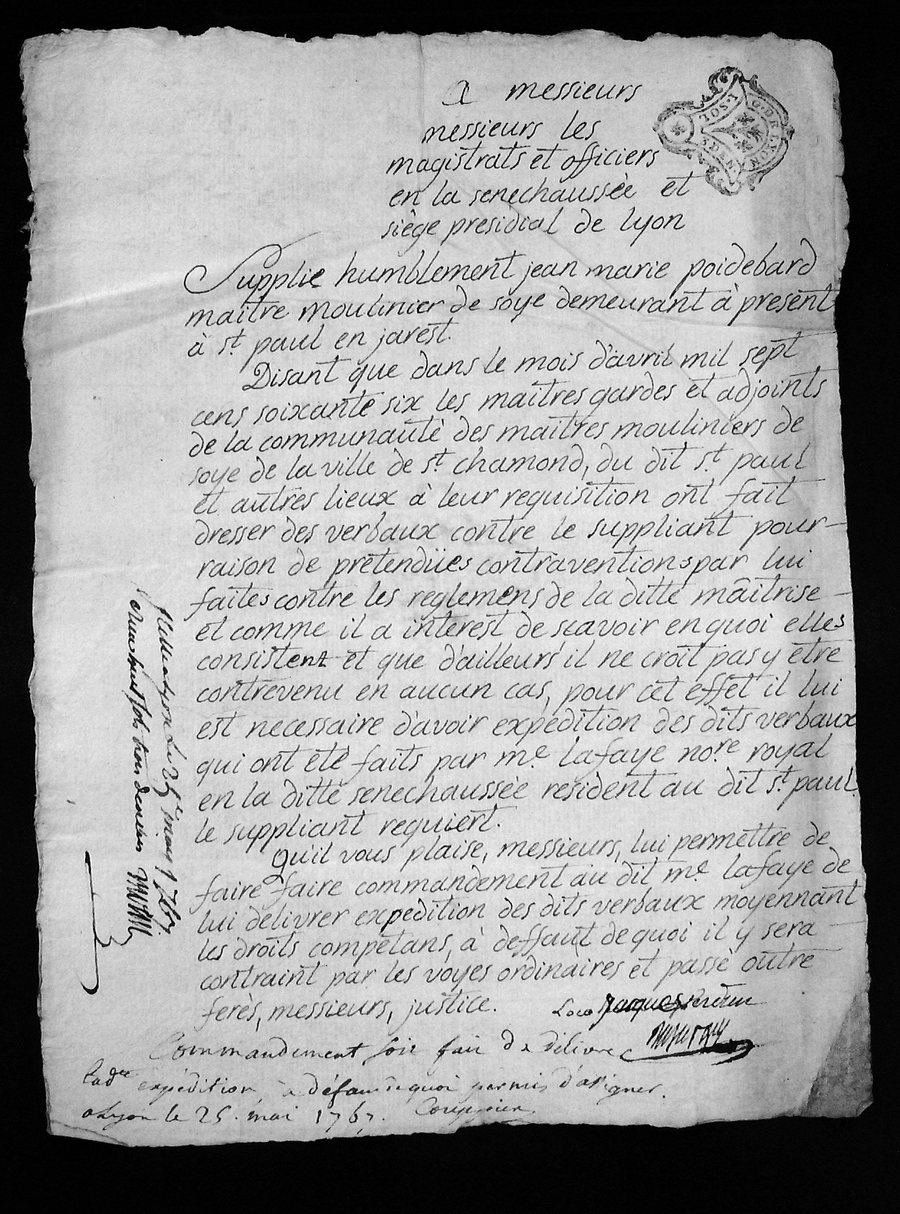 A messieurs
messieurs les
magistrats et officiers
en la senechaussée et
siège presidial de lyon
G.D.R LYON
1.SOL
Supplie humblement jean marie poidebard
maitre moulinier de soye demeurant à présent
à st. paul en jarest.
Disant que dans le mois d'avril mil sept
cens soixante six les maîtres gardes et adjoints
de la communauté des maitres mouliniers de
soye de la ville de st. chamond, du dit st. paul
et autres lieux à leur requisition ont fait
dresser des verbaux contre le suppliant pour-
raison de prétendües contraventions par lui
faites contre les reglemens de la ditte maîtrise-
et comme il a interest de scavoir en quoi elles
consistent et que d'ailleurs il ne croit pas y etre
contrevenu en aucun cas, pour cet effet il lui
est necessaire d'avoir expédition des dits verbaux
qui ont été faits par me. lafaye nore. royal
en la ditte senechaussée resident au dit st. paul.
le suppliant requiert.
Qu'il vous plaise, messieurs, lui permettre de
faire faire commandement au dit me. lafaye de
lui délivrer expedition des dits verbaux moyennant
les droits compétans, à deffaut de quoi il y sera
contraint par les voyes ordinaires et passé outre
ferés, messieurs, justice.
Loco
Commandement soit fait de délivrer
lade. expédition à défaut de quoi permis d'assigner.
a Lyon le 25. mai 1767.
a Lyon Le 25e. may 1767.
huit sols trois deniers